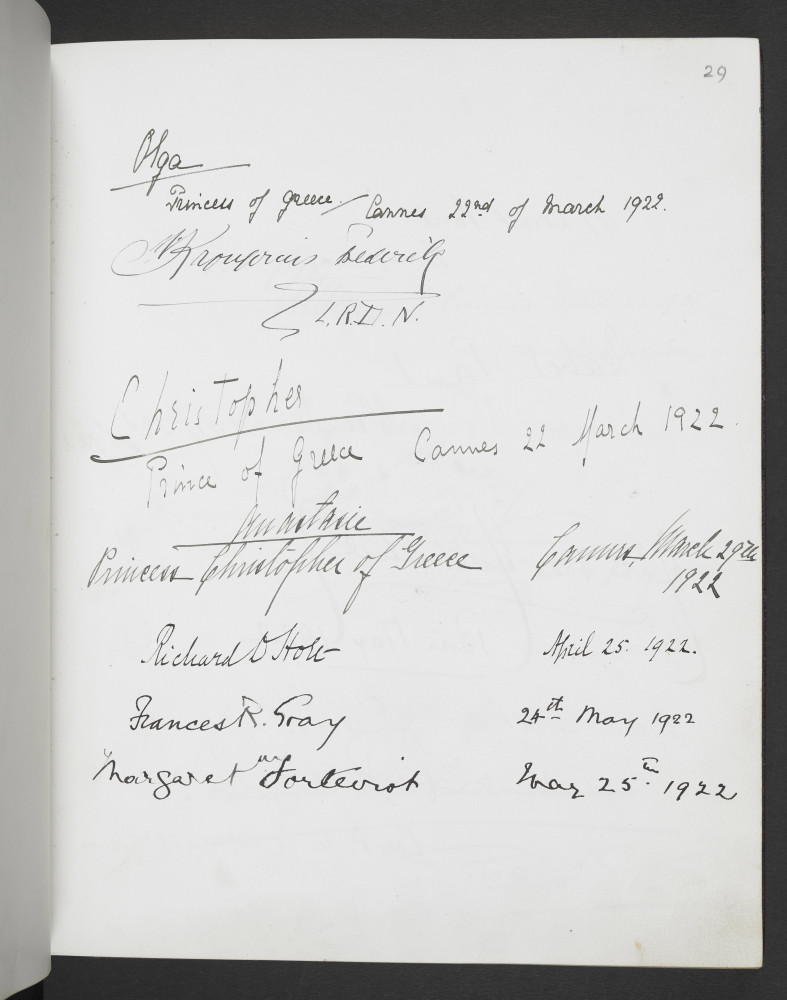 29
Olga
Princess of Greece. Cannes 22nd of March 1922.
Frederik
L.R.D.N.
Christopher
Prince of Greece Cannes 22 March 1922.
Anastasie
Princess Christopher of Greece Cannes, March 29th
1922
Richard D Holt April 25. 1922.
Frances R. Gray 24th May 1922
Margaret Forteviot May 25th 1922